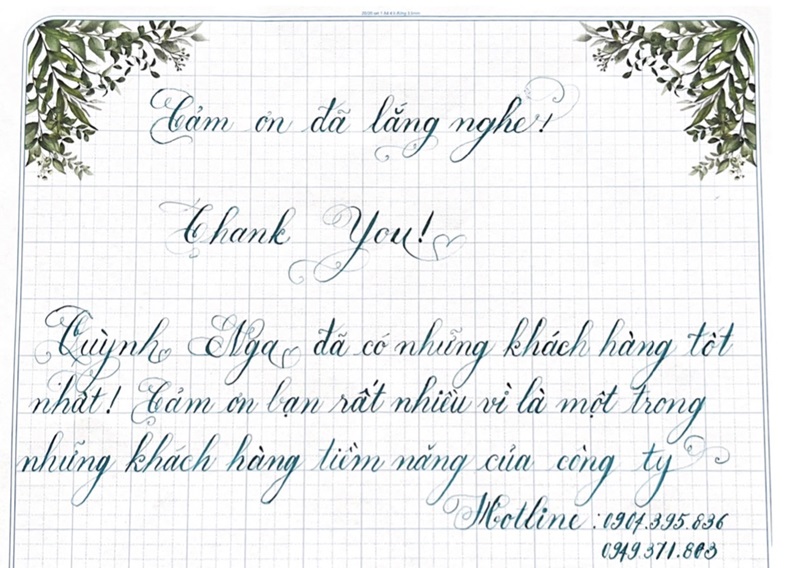 Cảm ơn đã lắng nghe!
Thank You!
Quỳnh Nga đã có những khách hàng tốt
nhất! Cảm ơn bạn rất nhiều vì là một trong
những khách hàng tiềm năng của công ty
Hotline : 0907.395.836
0949.371.803